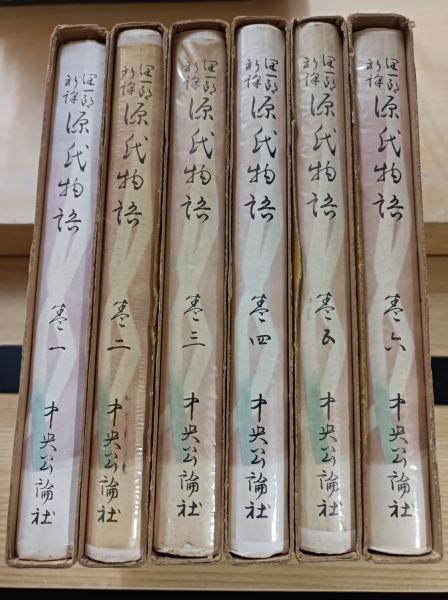 潤一郎
新譯
源氏物語
巻一
中央公論社
潤一郎
新譯
源氏物語
巻二
中央公論社
潤一郎
新譯
源氏物語
巻三
中央公論社
潤一郎
新譯
源氏物語
巻四
中央公論社
潤一郎
新譯
源氏物語
巻五
中央公論社
潤一郎
新譯
源氏物語
巻六
中央公論社